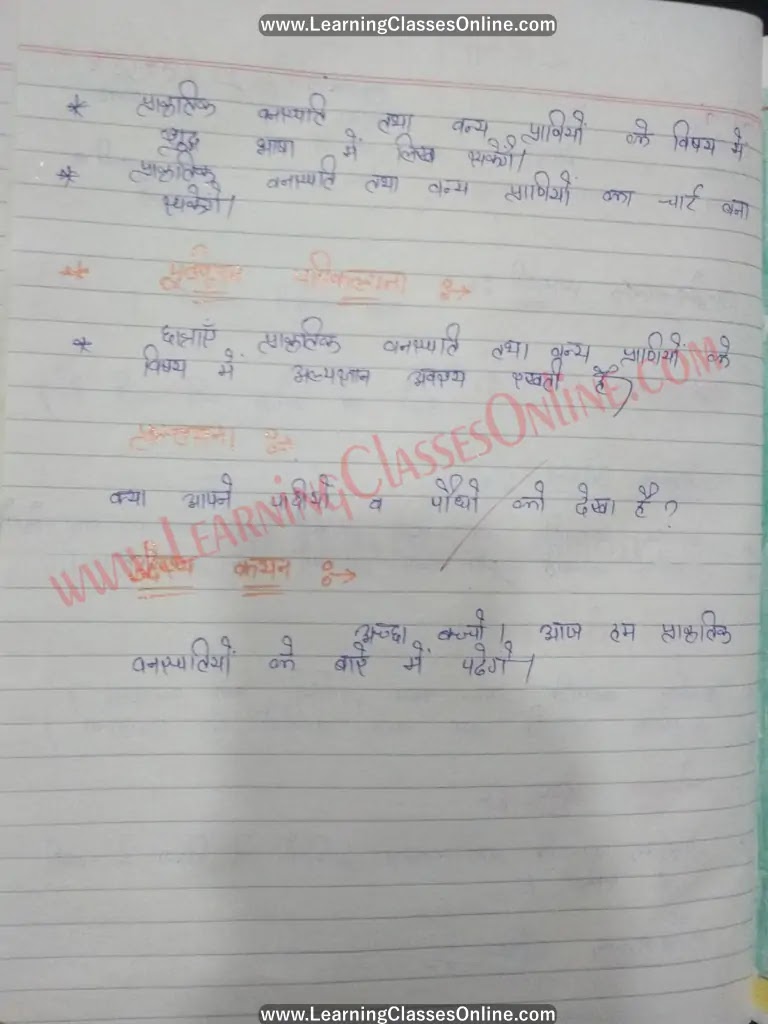 www.LearningClassesOnline.com
* प्राकृतिक वनस्पति तथा वन्य प्राणियों के विषय में
शुद्ध भाषा में लिख सकेगें।
* प्राकृतिक वनस्पति तथा वन्य प्राणियों का चार्ट बना
सकेगें।
* पूर्वज्ञान परिकल्पना :→
* छात्राएँ प्राकृतिक वनस्पति तथा वन्य प्राणियों के
विषय में अल्पज्ञान अवश्य रखती हैं
प्रस्तावना :→
क्या आपने व पौधो को देखा है?
www.LearningClassesOnline.com
उद्देश्य कथन :→
अच्छा बच्चो। आज हम प्राकृतिक
वनस्पतियों के बारे में पढेगे।
www.LearningClassesOnline.com